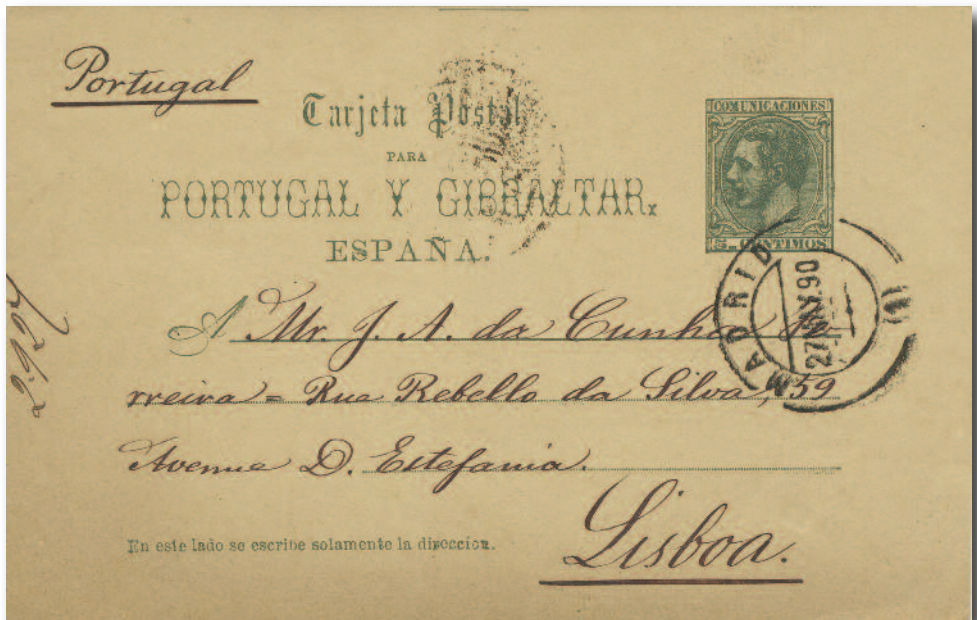 Portugal
Tarjeta Postal
PARA
PORTUGAL Y GIBRALTAR.
ESPAÑA.
COMUNICACIONES
5 CENTIMOS
MADRID
27 MAY 90
A Mr. J. A. da Cunha Fe
rreira = Rua Rebello da Silva, 59
Avenue D. Estefania.
Lisboa.
En este lado se escribe solamente la direccion.